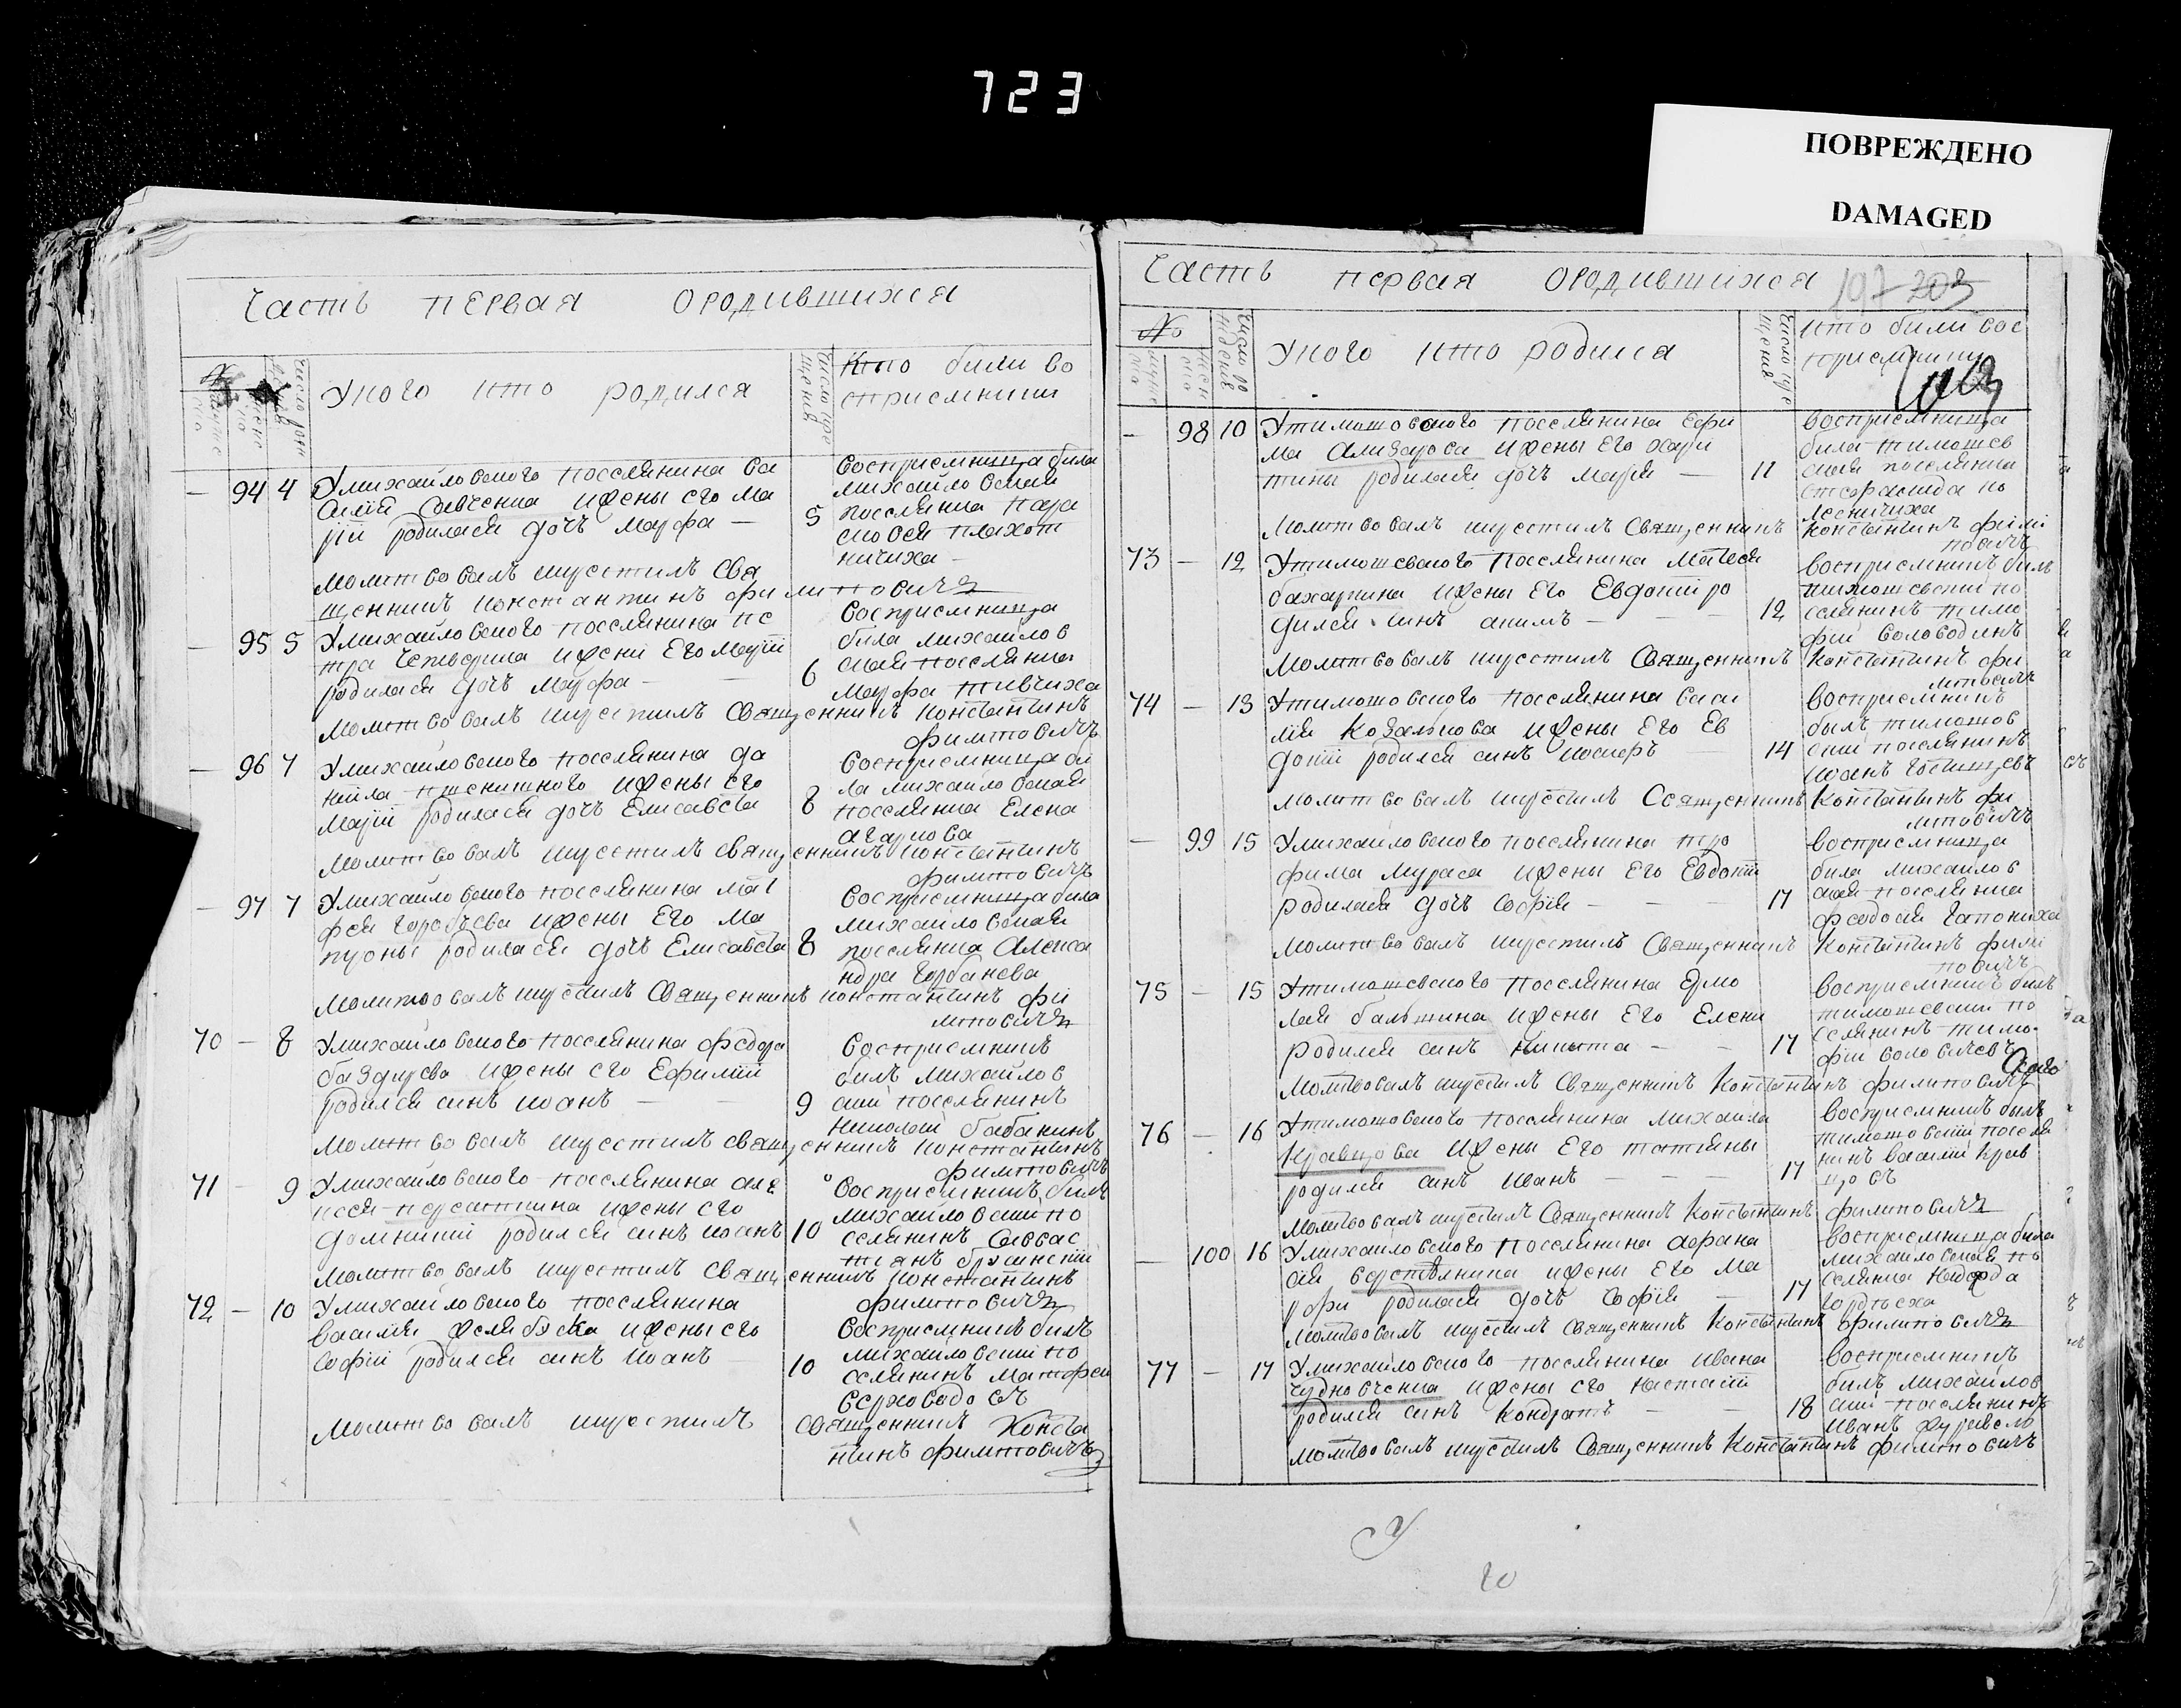 723
ПОВРЕЖДЕНО
DAMAGED
Часть первая о родившихся
№
У кого кто родился
Кто били во
сприемники
— 94 4 У михайловского поселянина ва
силія Савченка и жены его ма
ріи родилася дочь Марфа —
5
восприемница била
михайловская
поселянка пара
сковея плахот
ничиха —
молитвовалъ и крестилъ свя
щенникъ константинъ филиповичъ
— 95 5 У михайловского поселянина пе
тра Четверика и жени Его Маріи
родилася дочъ Марфа —
6
восприемница
била михайлов
ская поселянка
Марфа
молитвовалъ и крестилъ священникъ константинъ
филиповичъ
— 96 7 У михайловского поселянина да
ниила пшеничного и жены его
Маріи родилася дочъ Елисавета
8
восприемница би
ла михайловская
поселянка Елена
агаркова
молитвовалъ и крестилъ священникъ константинъ
филиповичъ
— 97 7 У михайловского поселянина мат
фея и жены Его Ма
троны родилася дочъ Елисавета
8
восприемница била
михайловская
поселянка Алекса
ндра Горбанева
молитвовалъ и крестилъ Священникъ константинъ фи
липовичъ
70 — 8 У михайловского поселянина федора
базарева и жены его Ефиміи
родился синъ иоанъ —
9
восприемникъ
билъ михайлов
скій поселянинъ
николай бабакинъ
молитвовалъ и крестилъ священникъ константинъ
филиповичъ
71 — 9 У михайловского поселянина але
ксея и жены его
домникіи родился синъ иоанъ
10
восприемникъ билъ
михайловскій по
селянинъ Севас
тіанъ
молитвовалъ и крестилъ священникъ константинъ
филиповичъ
72 — 10 У михайловского поселянина
василія и жены его
софіи родился синъ иоанъ
10
восприемникъ билъ
михайловскій по
селянинъ матфей
верховодовъ
молитвовалъ и крестилъ священникъ Конста
нтинъ филиповичъ
Часть первая о родившихся
197 203
№
У кого кто родился
кто били вос
приемники
— 98 10 У тимошовского поселянина Ефи
ма Ализарова и жены Его хари
тины родилася дочъ марія —
11
восприемница
била тимошев
ская поселянка
ко
лесничиха
молитвовалъ и крестилъ Священникъ константинъ фили
повичъ
73 — 12 У тимошевского поселянина Матвея
бахаркина и жены Его Евдокіи ро
дился синъ акимъ —
12
восприемникъ билъ
тимошевскій по
селянинъ тимо
фій володинъ
молитвовалъ и крестилъ Священникъ константинъ фи
липовичъ
74 — 13 У тимошовского поселянина васи
лія Козалкова и жены Его Ев
докіи родился синъ иосифъ —
14
восприемникъ
былъ тимошов
скій поселянинъ
иоанъ
молитвовалъ и крестилъ Священникъ Константинъ фи
липовичъ
— 99 15 У михайловского поселянина тро
фима Мураса и жены Его Евдокіи
родилася дочъ Софія —
17
восприемница
била михайлов
ская поселянка
феодосія Гапониха
молитвовалъ и крестилъ Священникъ Константинъ фили
повичъ
75 — 15 У тимошевского поселянина Ермо
лая и жены Его Елени
родился синъ никита —
17
восприемникъ билъ
тимошевскій по
селянинъ тимо
фій
молитвовалъ и крестилъ Священникъ Константинъ филиповичъ
76 — 16 У тимошовского поселянина михаила
Кравцова и жены Его татіяны
родился синъ иванъ —
17
восприемникъ билъ
тимошовскій поселя
нинъ василій Крав
цовъ
молитвовалъ и крестилъ Священникъ Константинъ филиповичъ
— 100 16 У михайловского поселянина афана
сія и жены Его ма
рфи родилася дочъ Софія —
17
восприемница била
михайловская по
селянка
молитвовалъ и крестилъ Священникъ Константинъ филиповичъ
77 — 17 У михайловского поселянина ивана
Чудновченка и жены его настасіи
родился синъ Кондратъ —
18
восприемникъ
билъ михайлов
скій поселянинъ
иванъ журавель
молитвовалъ и крестилъ Священникъ Константинъ филиповичъ
20